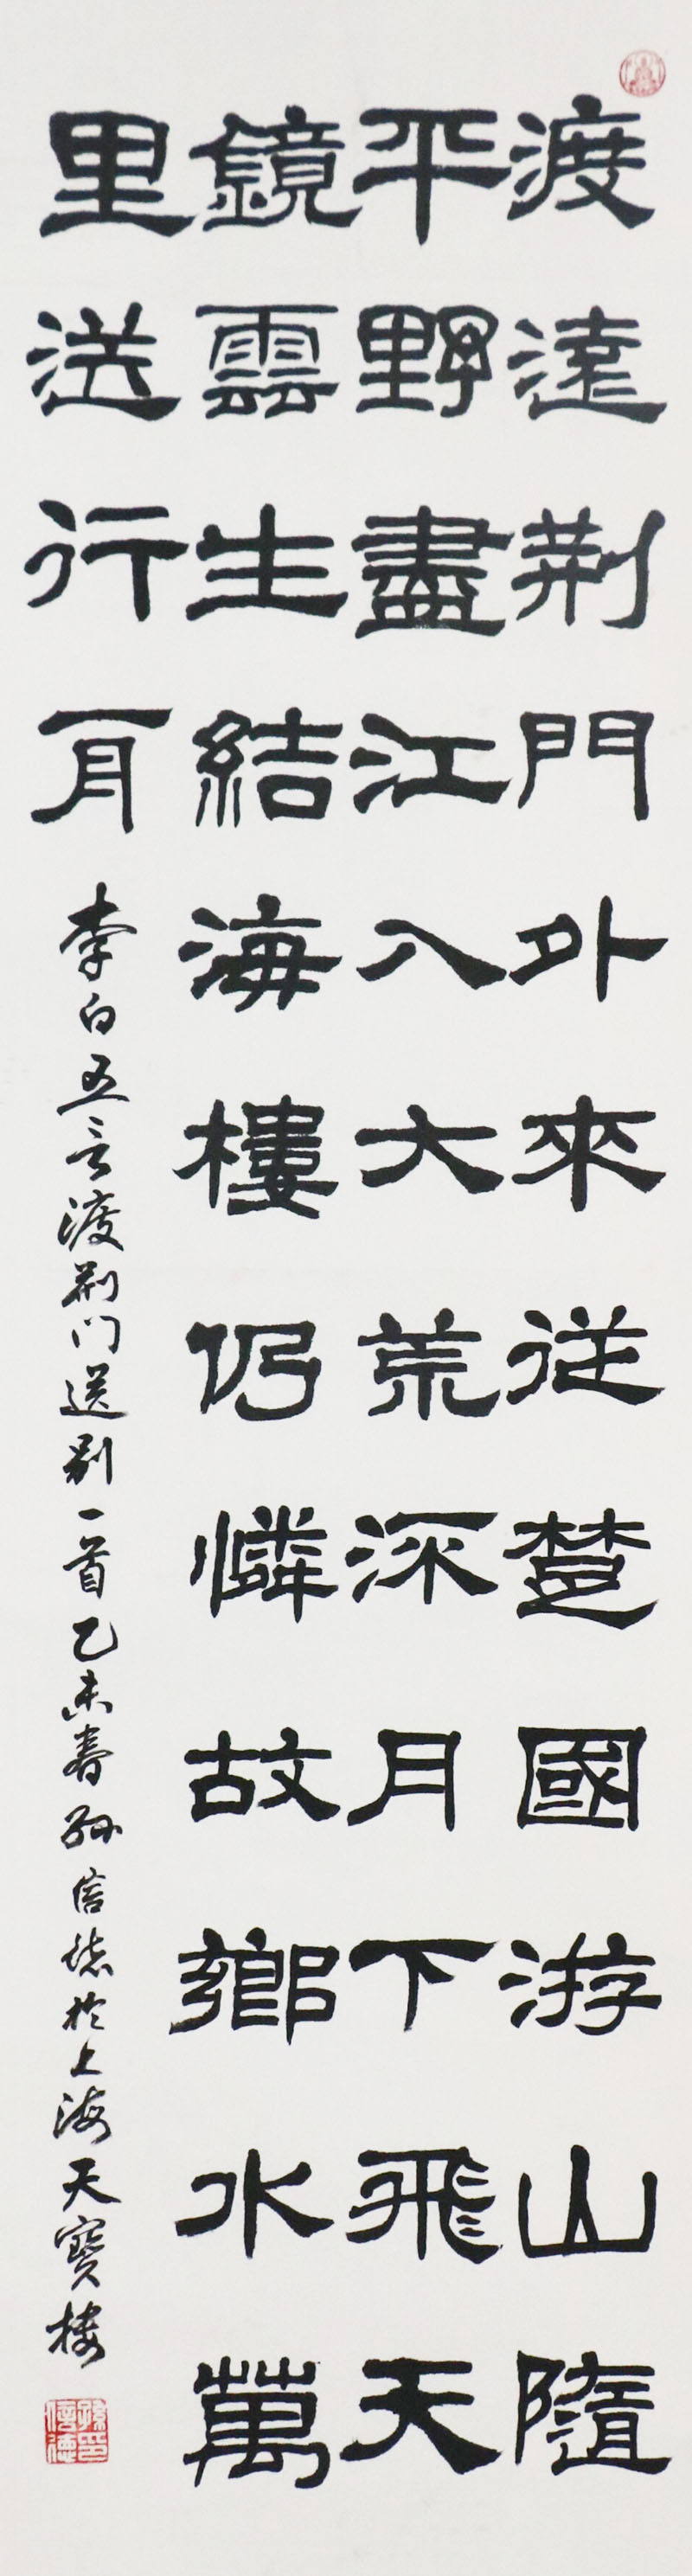 渡遠荆門外來從楚國游山隨
平野盡江入大荒流月下飛天
鏡雲生結海樓仍憐故鄉水萬
里送行舟
李白五言渡荆门送别一首乙未春孙信德於上海天寶樓
孫印信德